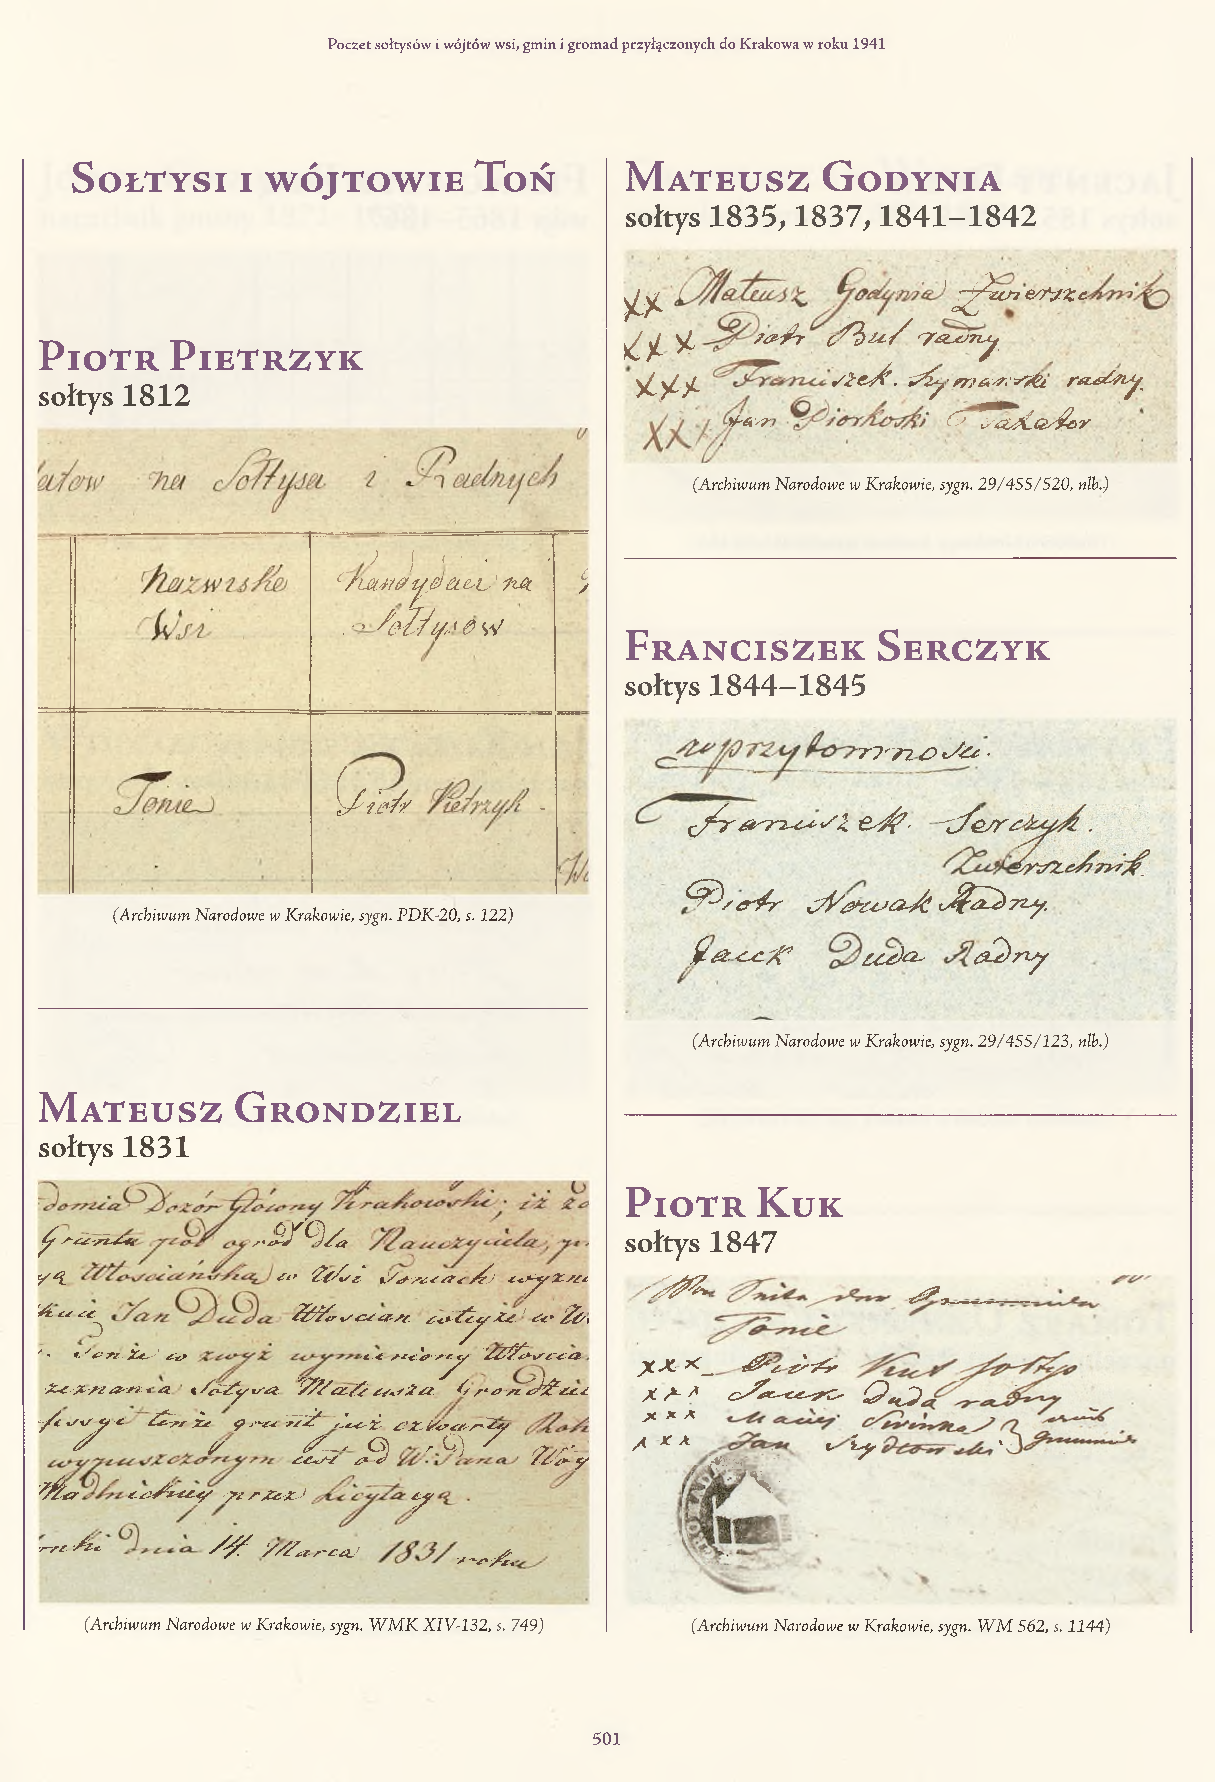 Poczet sołtysów i wójtów wsi, gmin i gromad przyłączonych do Krakowa w roku 1941
Sołtysi i wójtowie Toń
Piotr Pietrzyk
sołtys 1812
na Sołtysa i Radnych
Nazwisko
Wsi
Kandydaci na
Sołtysów
Tonie
Piotr Pietrzyk
(Archiwum Narodowe w Krakowie, sygn. PDK-20, s. 122)
Mateusz Grondziel
sołtys 1831
domia Dozór Główny Krakowski; iż
Gruntu pod ogród dla Nauczyciela,
Włosciańską w Wsi Toniach
Jan Duda Włoscian w
Tenże w zwyż wymieniony
zeznania Sołtysa Mateusza
tenże grunt już czwarty
wypuszczonym iest od W: Pana
przez Licytacyą.
dnia 14. Marca 1831 roku
(Archiwum Narodowe w Krakowie, sygn. WMK XIV-132, s. 749)
Mateusz Godynia
sołtys 1835, 1837, 1841–1842
XX Mateusz Godynia Zwierszchnik
XXX Piotr Bul radny
XXX Franciszek Szymanski radny
XX Jan Piorkoski Taxator
(Archiwum Narodowe w Krakowie, sygn. 29/455/520, nlb.)
Franciszek Serczyk
sołtys 1844–1845
w przytomnosci.
Franciszek Serczyk.
Zwierszchnik.
Piotr Nowak Radny.
Jacek Duda Radny
(Archiwum Narodowe w Krakowie, sygn. 29/455/123, nlb.)
Piotr Kuk
sołtys 1847
Tonie
XXX Piotr Kuk sołtys
XXX Jacek Duda radny
XXX Maciej Swinka
XXX Jan Szydłowski
(Archiwum Narodowe w Krakowie, sygn. WM 562, s. 1144)
501